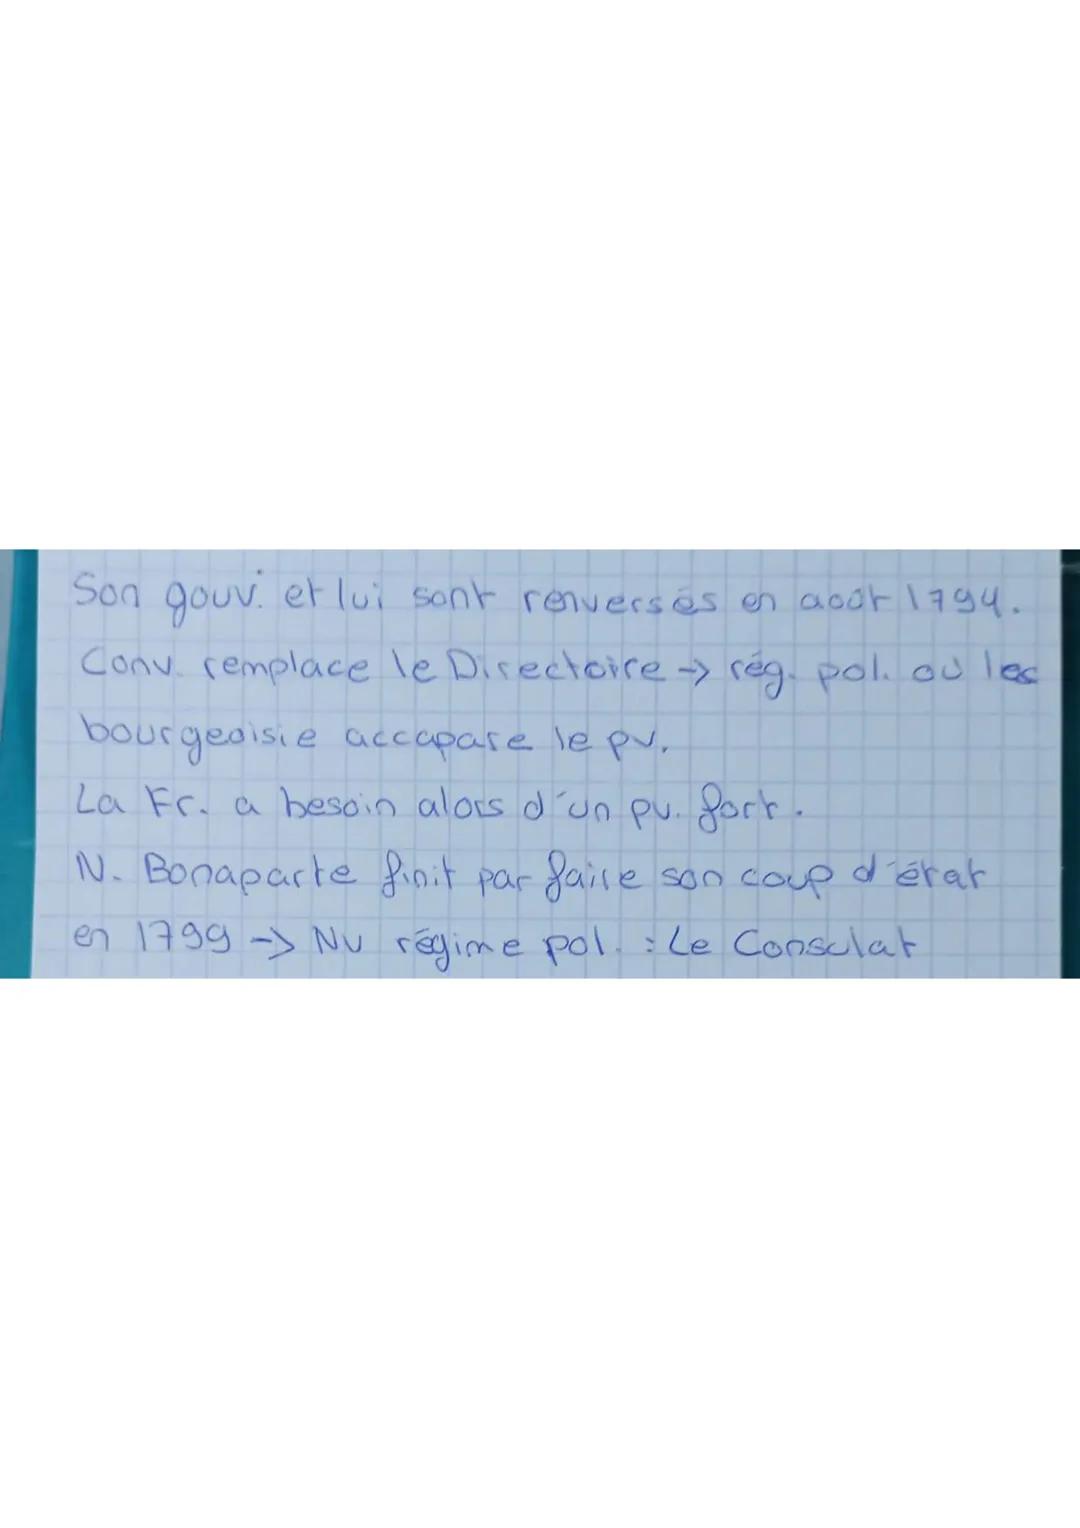 Son gouv. et lui sont renversés en août 1794.
Conv. remplace le Directoire -> rég. pol. où les
bourgeoisie accapare le pv.
La Fr. a besoin alors d'un pv. fort.
N. Bonaparte finit par faire son coup d'état
en 1799 -> Nv régime pol. : Le Consulat